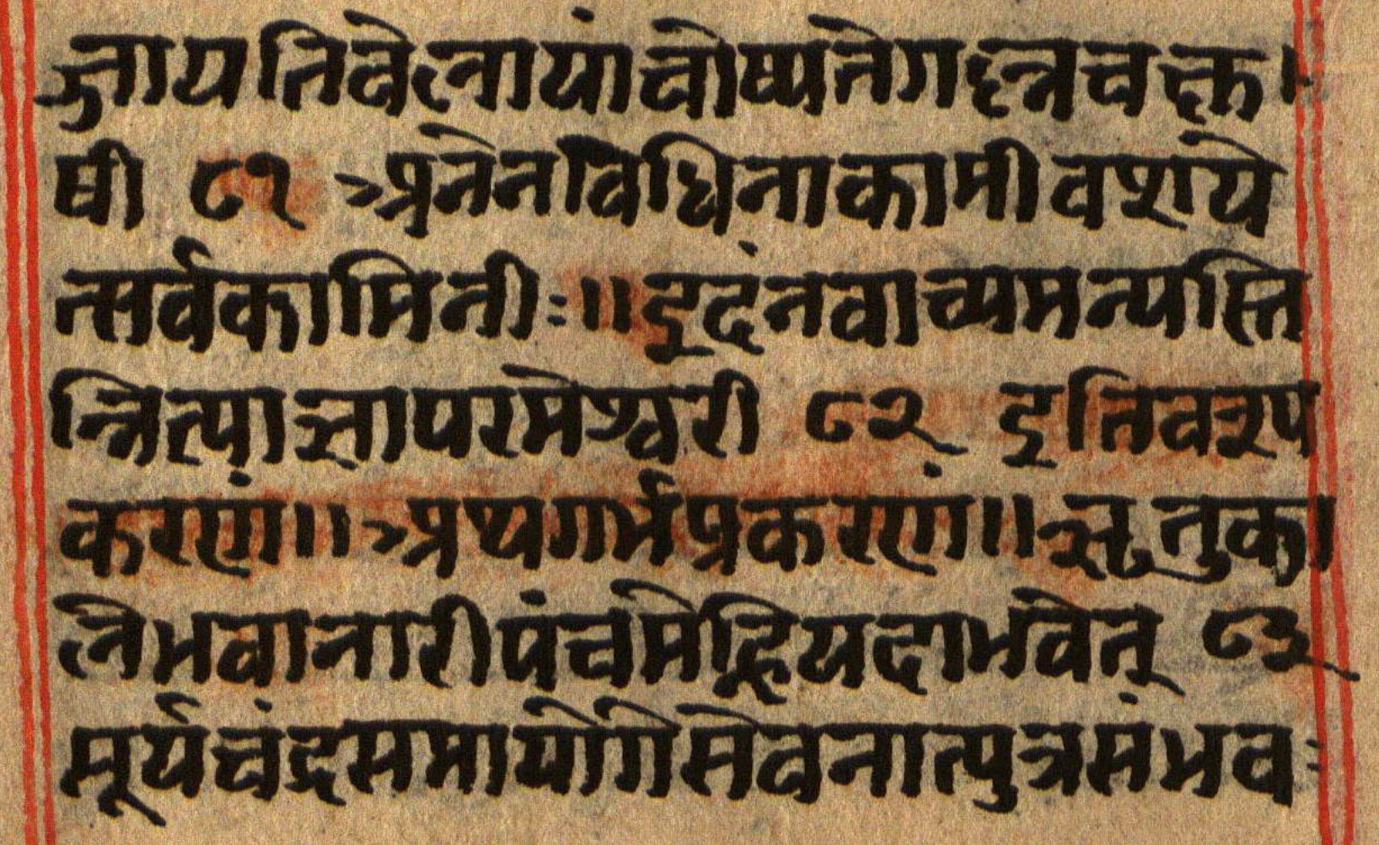 ज्ञायतिवेलायांचोष्यतेगह्नचक्त।
षी ८१ अनेनविधिनाकामीवशये
त्सर्वकामिनीः॥इदंनवाच्यमन्यस्ति
न्नित्याज्ञापरमेश्वरी ८२ इतिवश्यप
करणं॥अथगर्भप्रकरणं॥ऋतुका
लेभवानारीपंचमेह्नियदाभवेत् ८३
सूर्यचंद्रसमायोगेसेवनात्पुत्रसंभवः